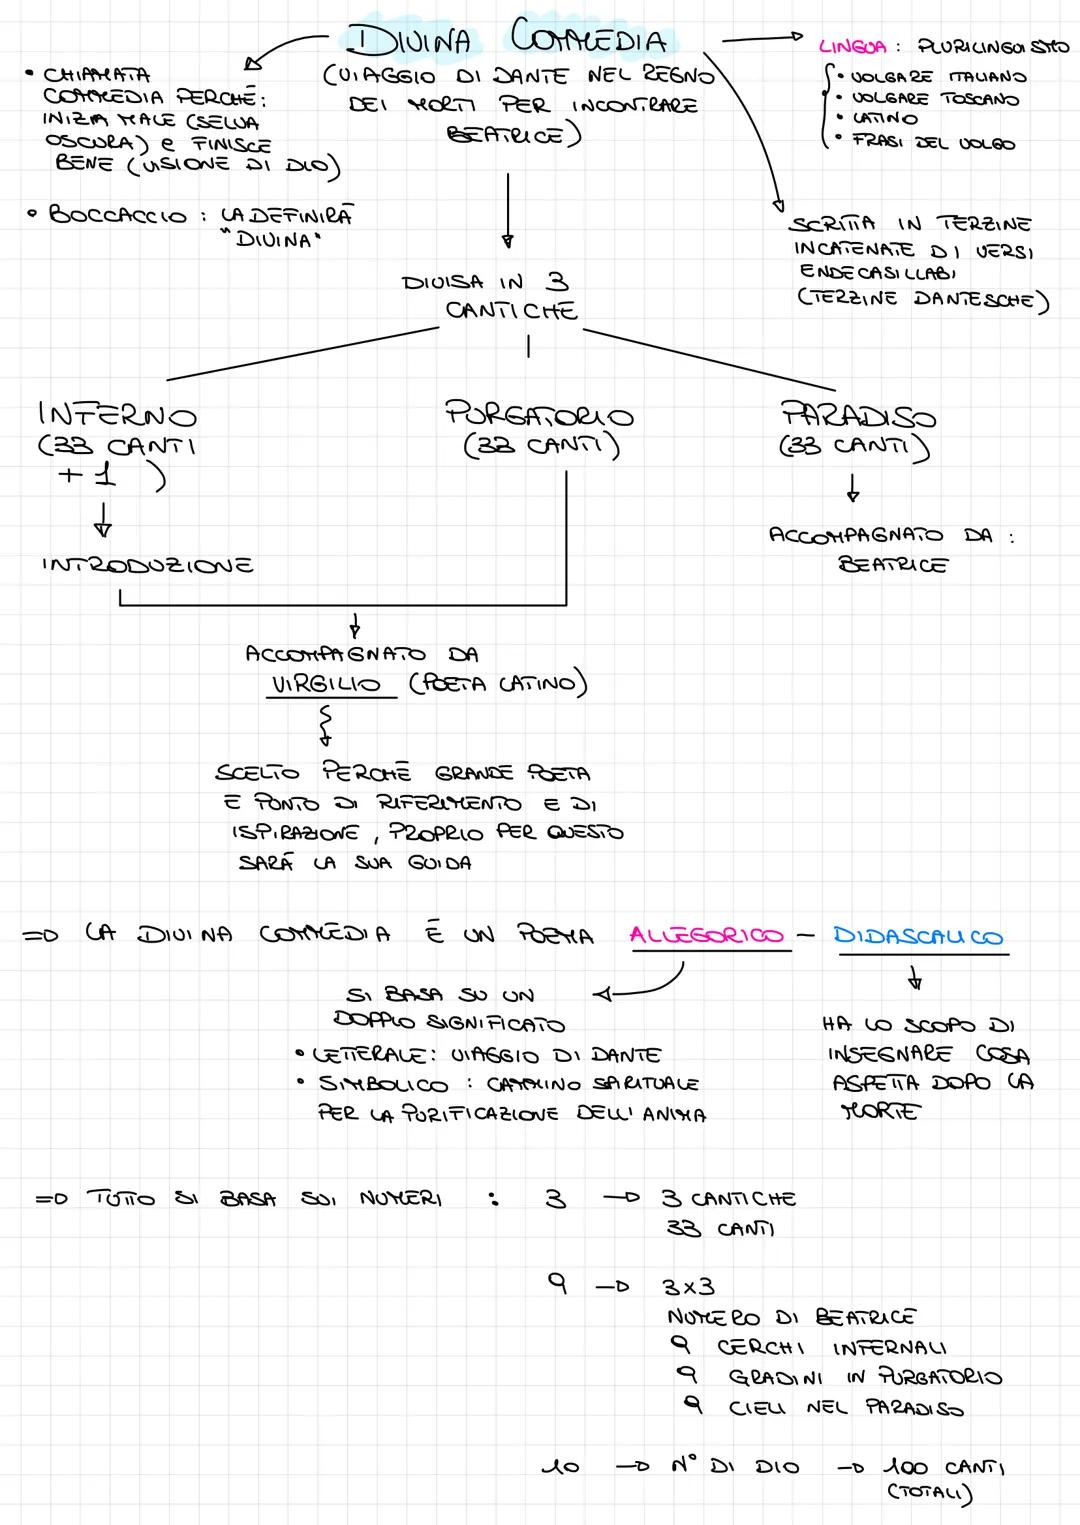 DIVINA COMMEDIA
(VIAGGIO DI DANTE NEL REGNO
DEI MORTI PER INCONTRARE
BEATRICE)
• CHIAMATA
COMMEDIA PERCHÉ:
INIZIA MALE (SELVA
OSCURA) e FINISCE
BENE (VISIONE DI DIO)
• BOCCACCIO : LA DEFINIRÀ
"DIVINA"
LINGUA : PLURILINGUISMO
• VOLGARE ITALIANO
• VOLGARE TOSCANO
• LATINO
• FRASI DEL VOLGO
SCRITTA IN TERZINE
INCATENATE DI VERSI
ENDECASILLABI
(TERZINE DANTESCHE)
DIVISA IN 3
CANTICHE
INFERNO
(33 CANTI
+ 1 )
INTRODUZIONE
PURGATORIO
(33 CANTI)
PARADISO
(33 CANTI)
ACCOMPAGNATO DA :
BEATRICE
ACCOMPAGNATO DA
VIRGILIO (POETA LATINO)
SCELTO PERCHÉ GRANDE POETA
E PUNTO DI RIFERIMENTO E DI
ISPIRAZIONE, PROPRIO PER QUESTO
SARÀ LA SUA GUIDA
=D LA DIVINA COMMEDIA È UN POEMA ALLEGORICO - DIDASCALICO
SI BASA SU UN
DOPPIO SIGNIFICATO
• LETTERALE: VIAGGIO DI DANTE
• SIMBOLICO : CAMMINO SPIRITUALE
PER LA PURIFICAZIONE DELL'ANIMA
HA LO SCOPO DI
INSEGNARE COSA
ASPETTA DOPO LA
MORTE
=D TUTTO SI BASA SUI NUMERI : 3 → 3 CANTICHE
33 CANTI
9 → 3×3
NUMERO DI BEATRICE
9 CERCHI INFERNALI
9 GRADINI IN PURGATORIO
9 CIELI NEL PARADISO
10 → N° DI DIO → 100 CANTI
(TOTALI)